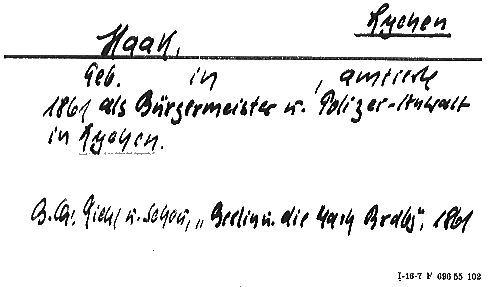 Lychen
Haak,
Geb. in , amtierte
1861 als Bürgermeister u. Polizei-Anwalt
in Lychen.
B. Qu. Riehl u. Scheu, „Berlin u. die Mark Brdbg", 1861
I-16-7 F 696 55 102